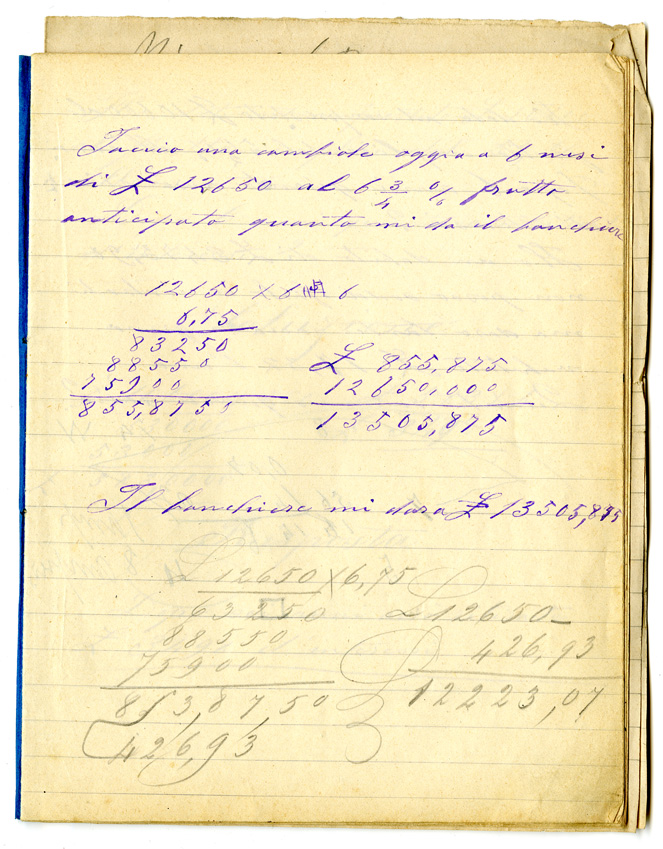 Faccio una cambiale oggi a 6 mesi
di £ 12650 al 6 3/4 % frutto
anticipato quanto mi da il banchiere
12650 × 6 6
6,75
83250
88550
75900
855,8750
£ 855,875
12650,000
13505,875
Il banchiere mi dara £ 13505,875
£ 12650 × 6,75
63250
88550
75900
853,8750
426,93
£ 12650 –
426,93
12223,07